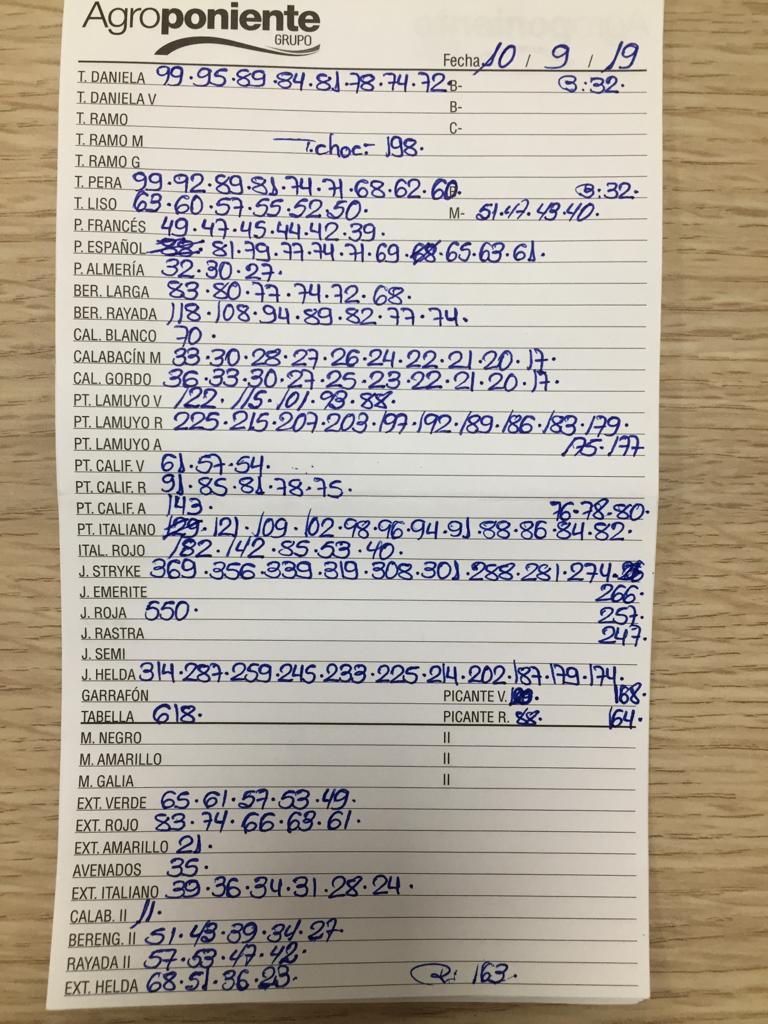 Agroponiente
GRUPO
Fecha 10 / 9 / 19
T. DANIELA 99·95·89·84·81·78·74·72· B- B:32·
T. DANIELA V B-
T. RAMO C-
T. RAMO M T.choc:- 198·
T. RAMO G
T. PERA 99·92·89·81·74·71·68·62·60· B:32·
T. LISO 63·60·57·55·52·50· M- 51·47·43·40·
P. FRANCÉS 49·47·45·44·42·39·
P. ESPAÑOL 81·79·77·74·71·69·68·65·63·61·
P. ALMERÍA 32·30·27·
BER. LARGA 83·80·77·74·72·68·
BER. RAYADA 118·108·94·89·82·77·74·
CAL. BLANCO 70·
CALABACÍN M 33·30·28·27·26·24·22·21·20·17·
CAL. GORDO 36·33·30·27·25·23·22·21·20·17·
PT. LAMUYO V 122·115·101·93·88·
PT. LAMUYO R 225·215·207·203·197·192·189·186·183·179·
PT. LAMUYO A 175·177
PT. CALIF. V 61·57·54·
PT. CALIF. R 91·85·81·78·75·
PT. CALIF. A 143· 76·78·80·
PT. ITALIANO 129·121·109·102·98·96·94·91·88·86·84·82·
ITAL. ROJO 182·142·85·53·40·
J. STRYKE 369·356·339·319·308·301·288·281·274·
J. EMERITE 266·
J. ROJA 550· 257·
J. RASTRA 247·
J. SEMI
J. HELDA 314·287·259·245·233·225·214·202·187·179·174·
GARRAFÓN PICANTE V. 168·
TABELLA 618· PICANTE R. 88· 164·
M. NEGRO II
M. AMARILLO II
M. GALIA II
EXT. VERDE 65·61·57·53·49·
EXT. ROJO 83·74·66·63·61·
EXT. AMARILLO 21·
AVENADOS 35·
EXT. ITALIANO 39·36·34·31·28·24·
CALAB. II 11·
BERENG. II 51·43·39·34·27·
RAYADA II 57·53·47·42·
EXT. HELDA 68·51·36·23· R: 163·